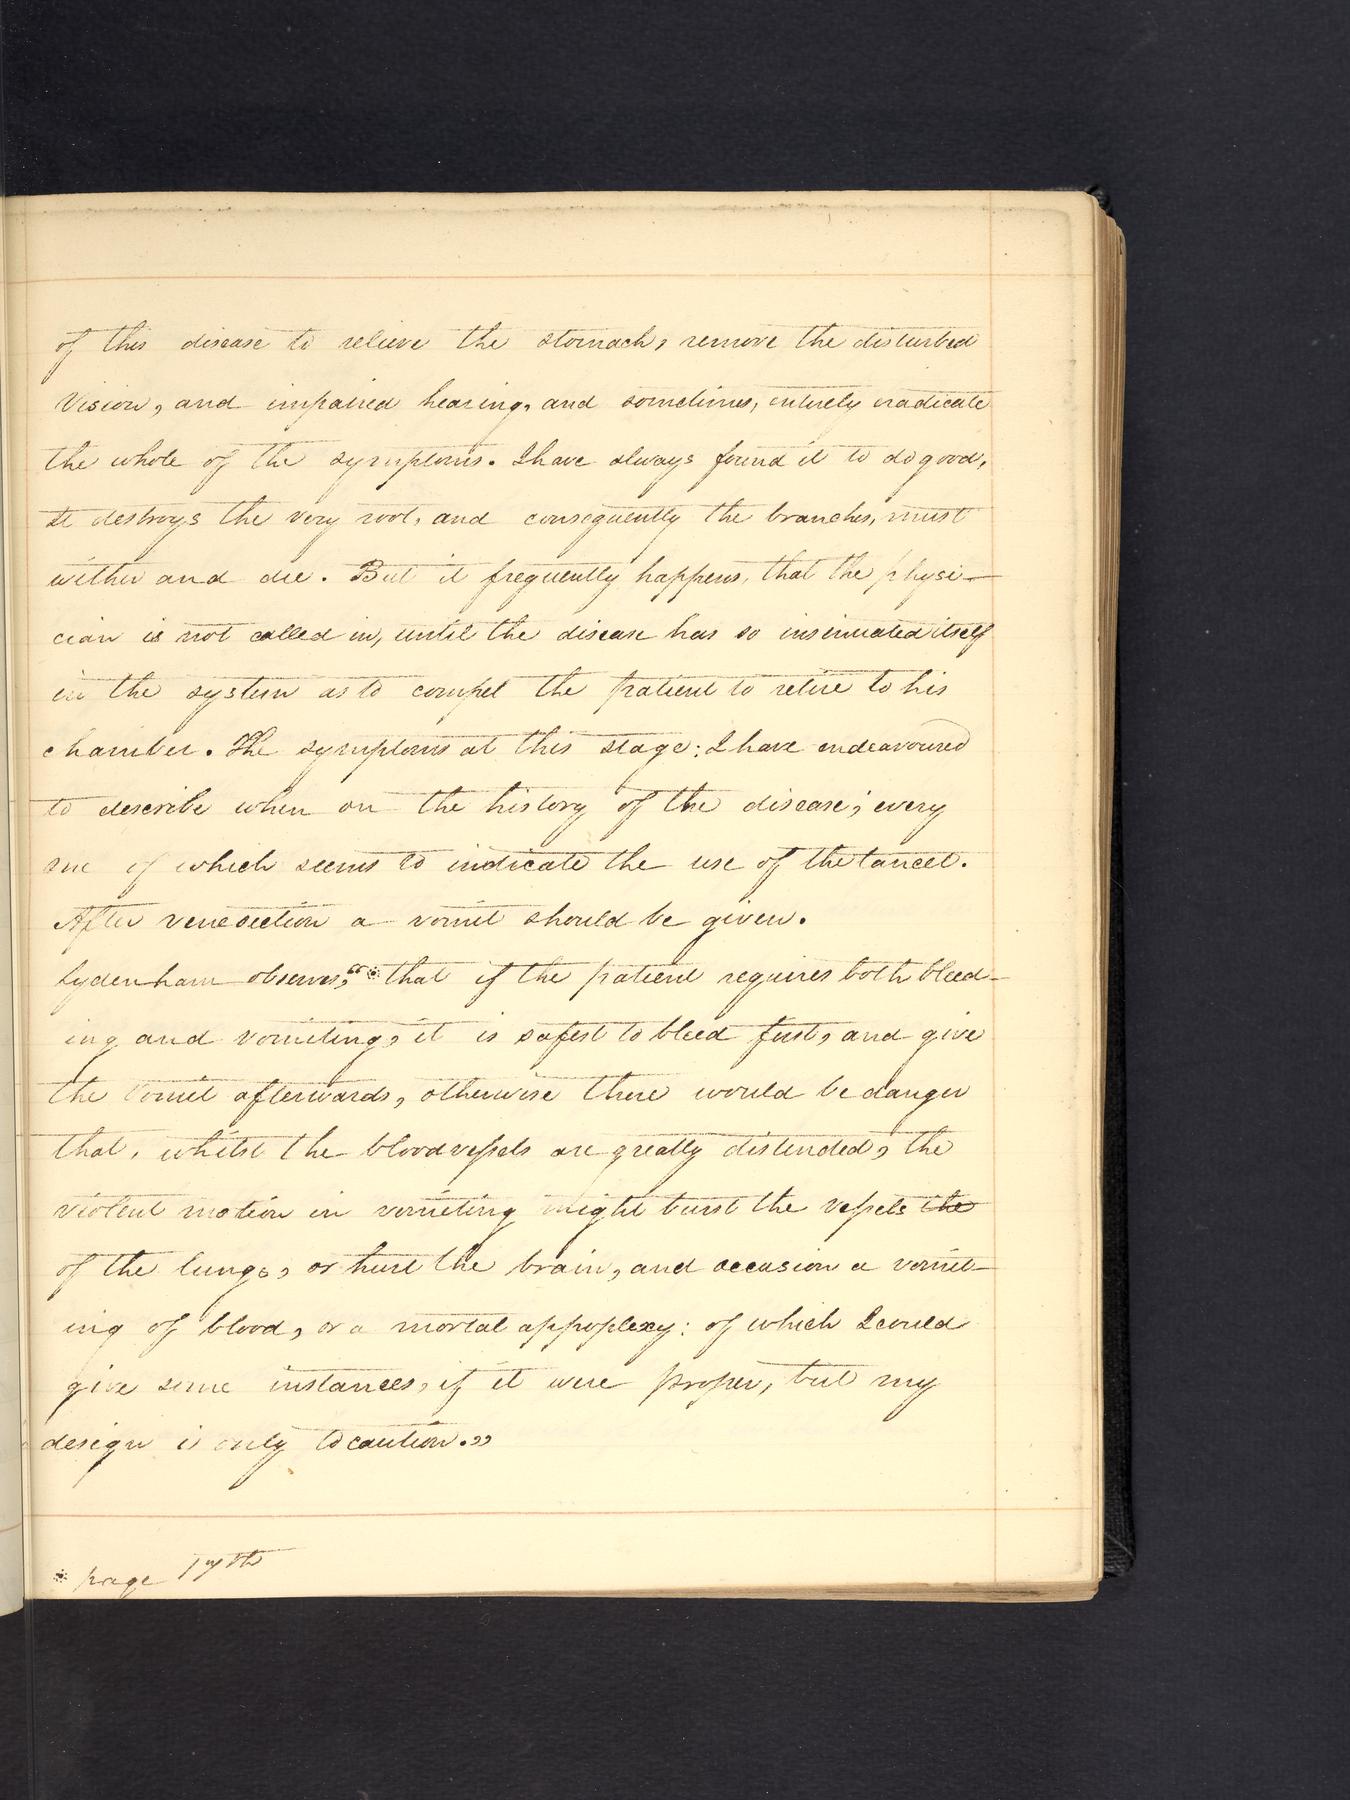 of this disease to relieve the stomach, remove the disturbed
vision, and impaired hearing, and sometimes, entirely eradicate
the whole of the symptoms. I have always found it to do good,
It destroys the very root, and consequently the branches, must
wither and die. But it frequently happens, that the physi-
cian is not called in, until the disease has so insinuated itself
in the system as to compel the patient to retire to his
chamber. The symptoms at this stage: I have endeavoured
to describe when on the history of the disease; every
one of which seems to indicate the use of the lancet.
After venesection a vomit should be given.
Sydenham observes, "* that if the patient requires both bleed-
ing and vomiting, it is safest to bleed first, and give
the vomit afterwards, otherwise there would be danger
that, whilst the bloodvessels are greatly distended, the
violent motion in vomiting might burst the vessels the
of the lungs, or hurt the brain, and occasion a vomit-
ing of blood, or a mortal appoplexy: of which I could
give some instances, if it were proper, but my
design is only to caution."
* page 17th